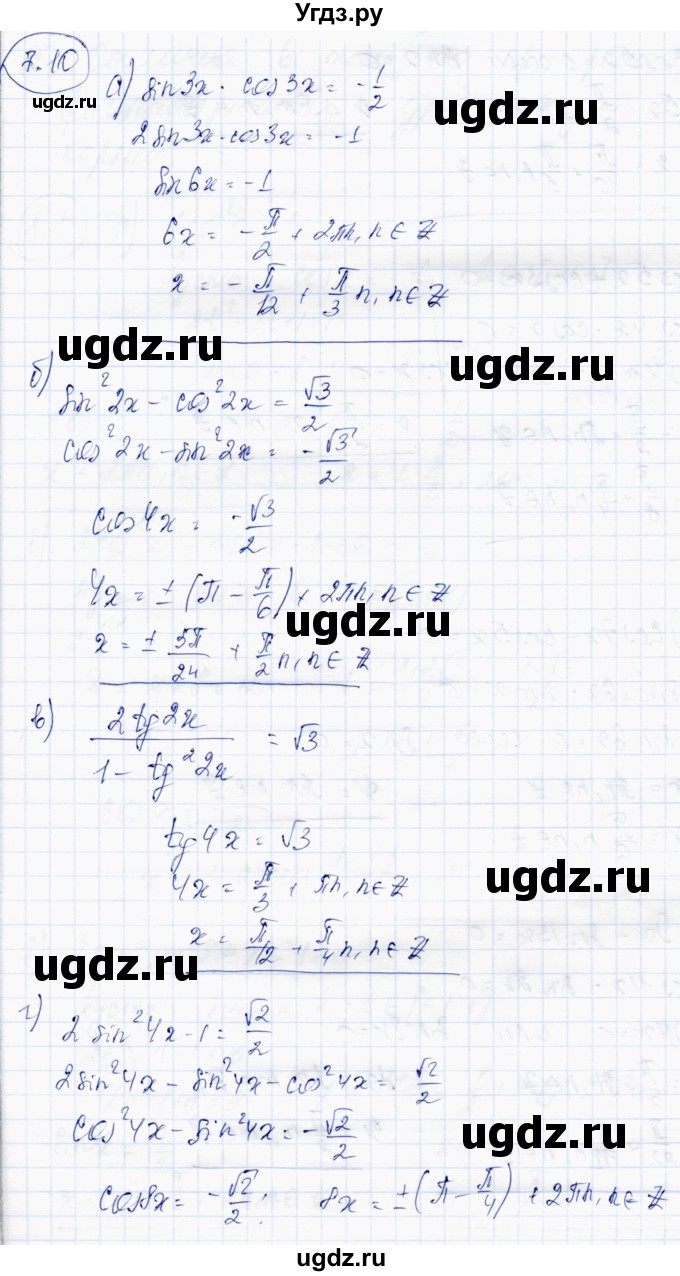 Угдз.ру
7.10
ugdz.ru
ugdz.ru
а) sin3x · cos3x = -1/2
2sin3x·cos3x = -1
sin6x = -1
6x = -π/2 + 2πn, n∈Z
x = -π/12 + π/3 n, n∈Z
ugdz.ru
ugdz.ru
б)
sin²2x - cos²2x = √3/2
cos²2x - sin²2x = -√3/2
cos4x = -√3/2
4x = ±(π - π/6) + 2πn, n∈Z
ugdz.ru
x = ± 5π/24 + π/2 n, n∈Z
в) 2tg2x / 1 - tg²2x = √3
tg4x = √3
4x = π/3 + πn, n∈Z
ugdz.ru
x = π/12 + π/4 n, n∈Z
ugdz.ru
г)
2sin²4x - 1 = √2/2
2sin²4x - sin²4x - cos²4x = √2/2
cos²4x - sin²4x = -√2/2
ugdz.ru
cos8x = -√2/2; 8x = ±(π - π/4) + 2πn, n∈Z
ugdz.ru